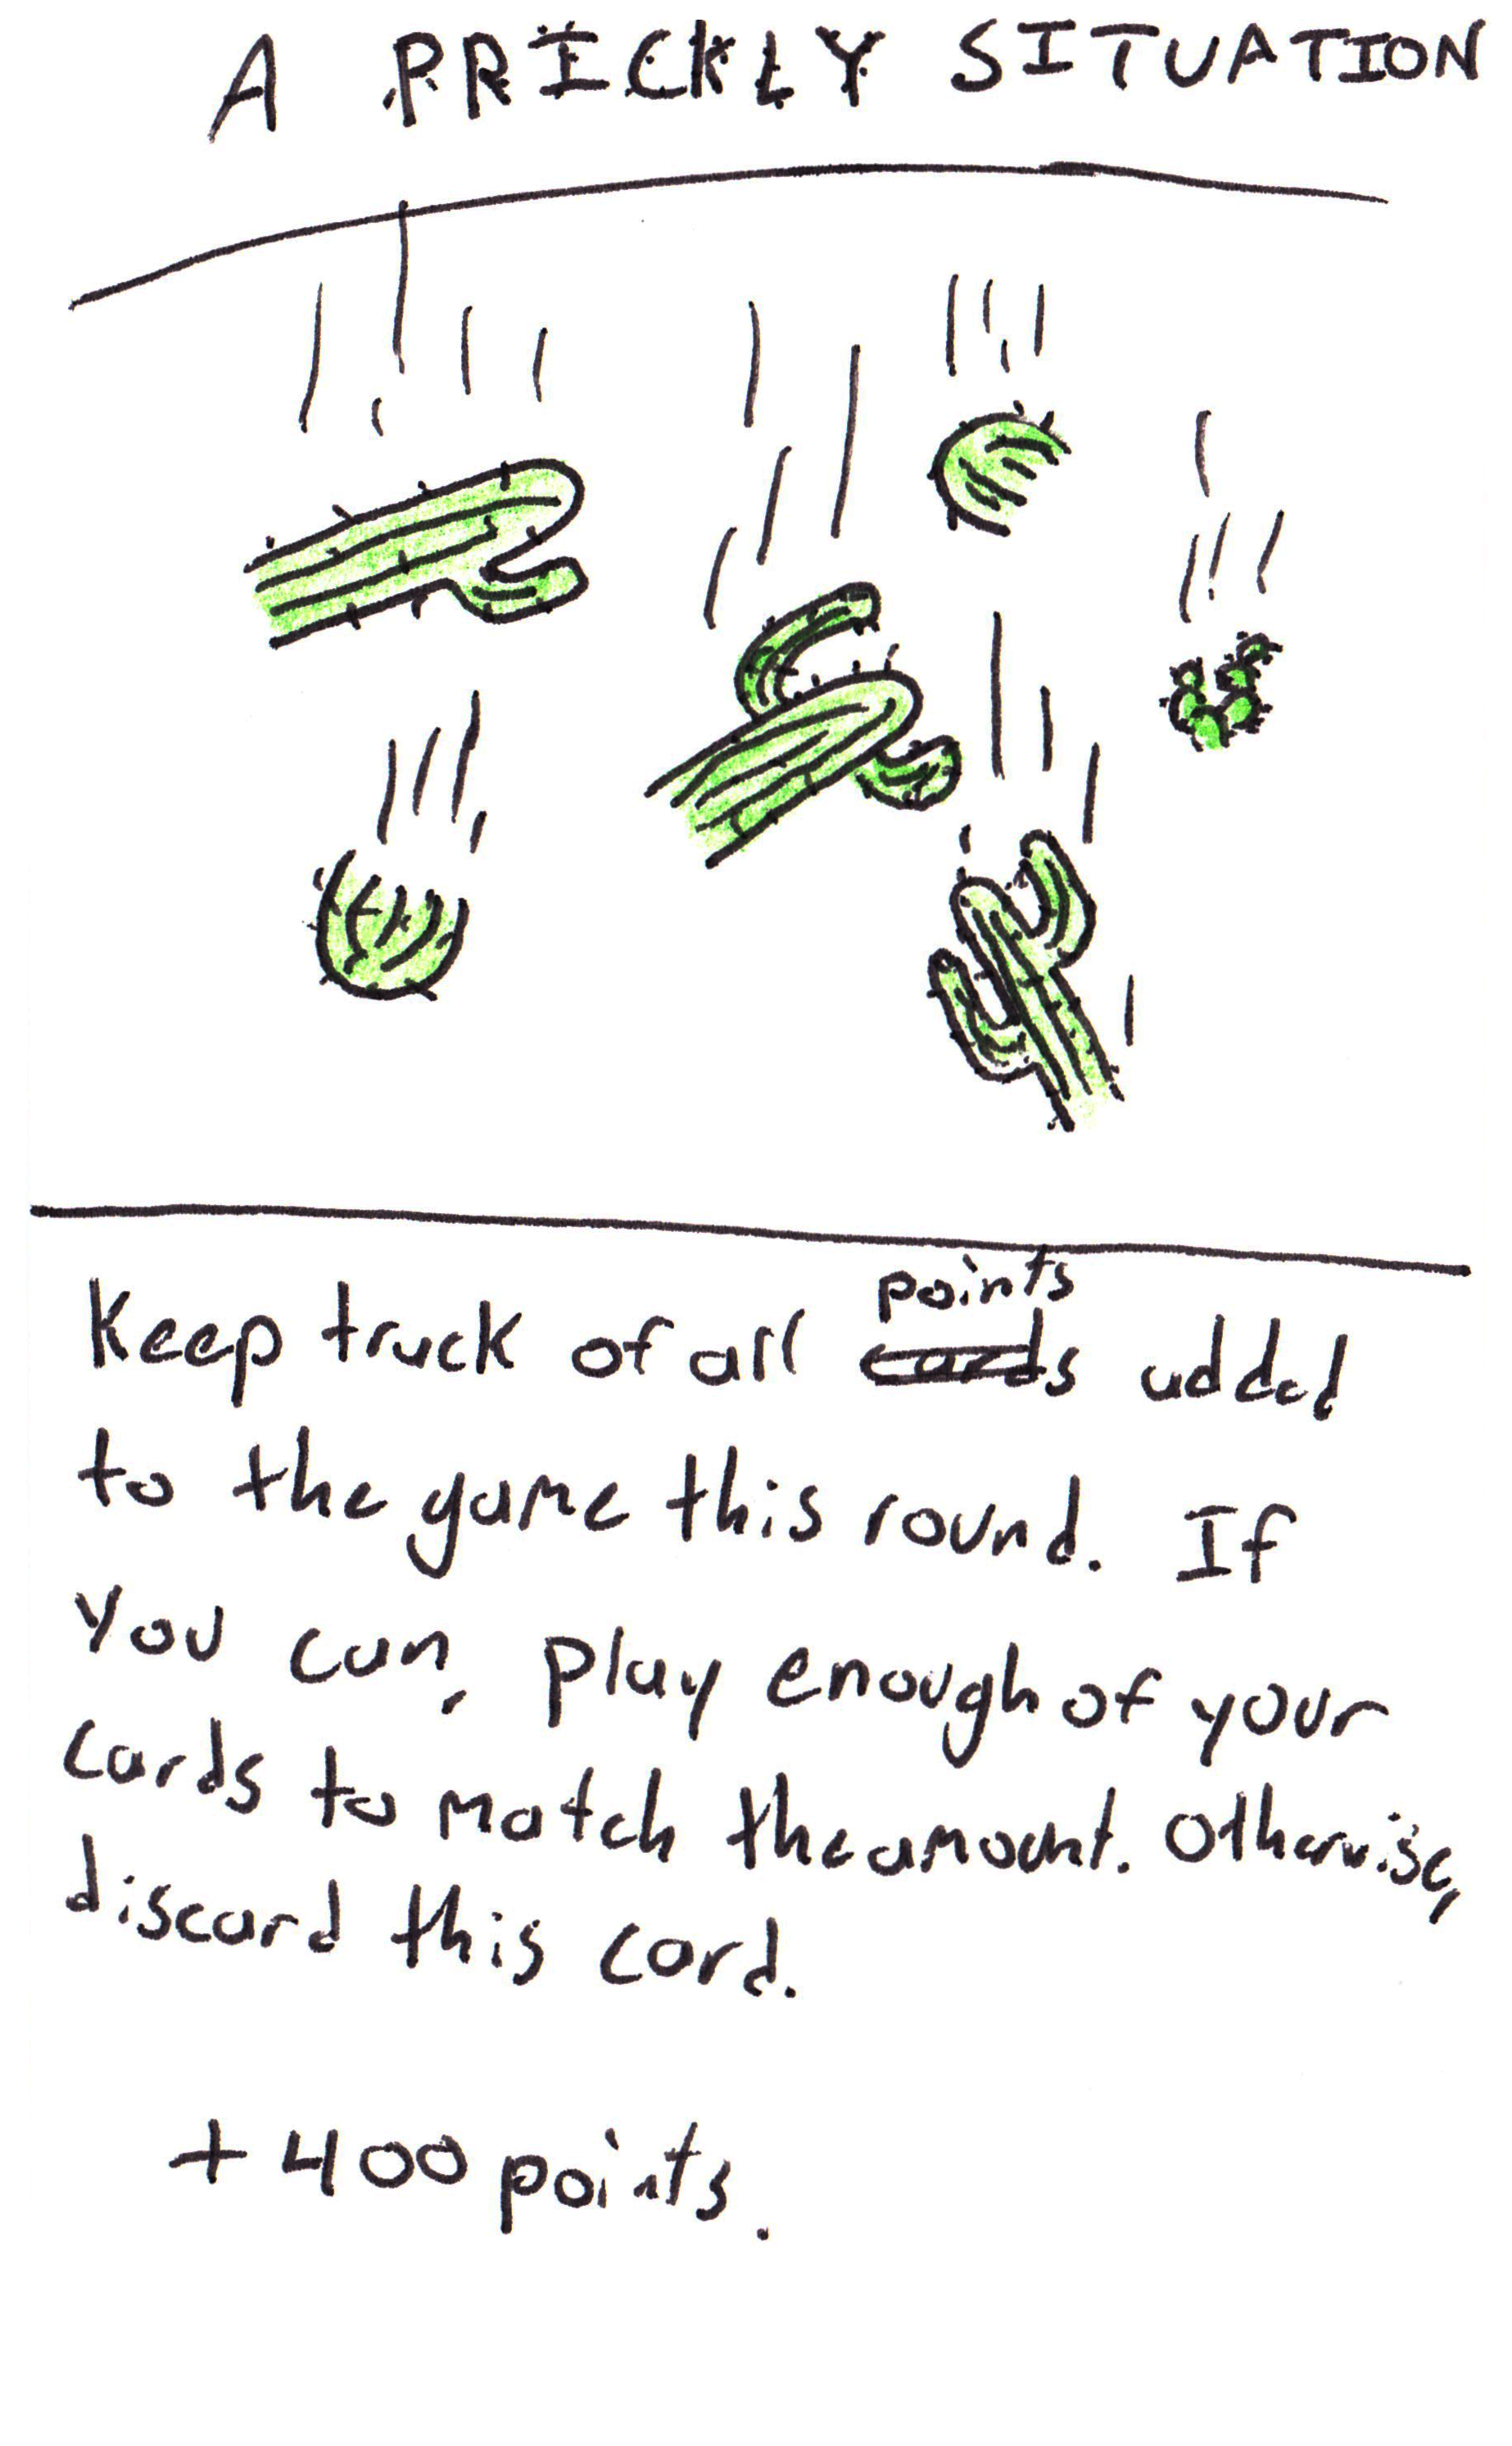 A PRICKLY SITUATION
points
Keep track of all cards added
to the game this round. If
you can, play enough of your
cards to match the amount. Otherwise,
discard this card.
+400 points.